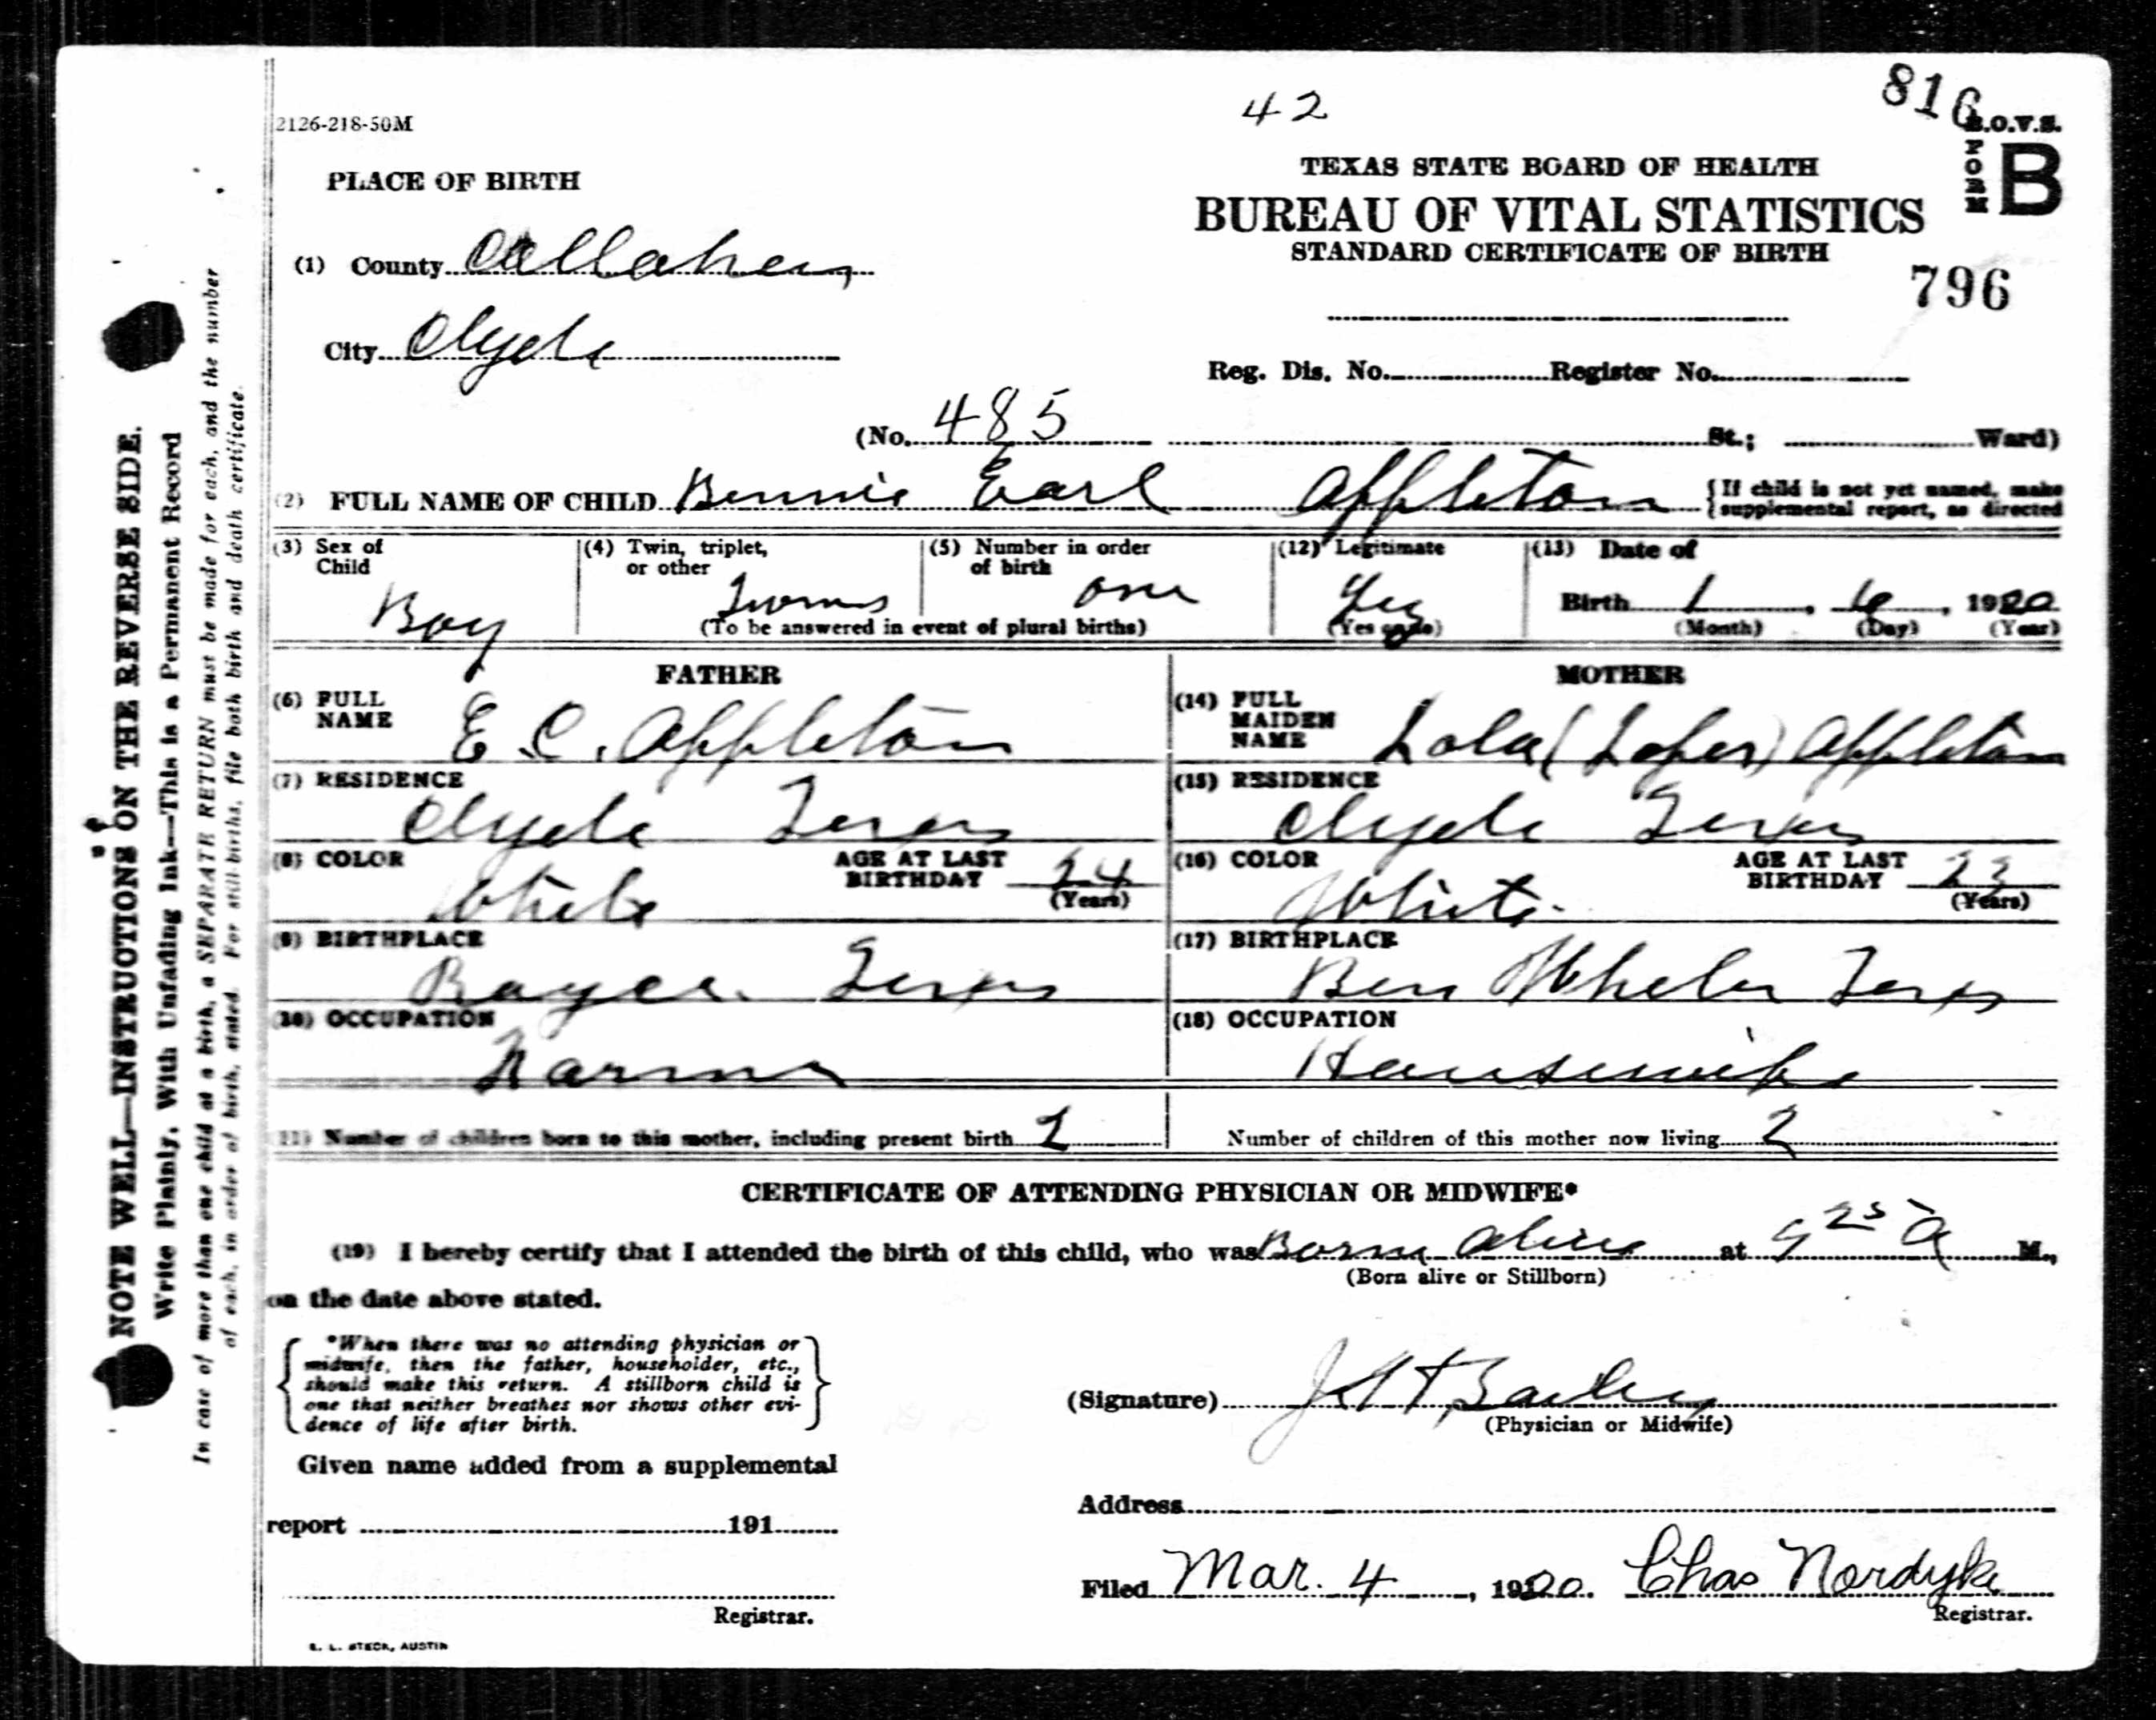 42
816
2126-218-50M
B.O.V.S.
FORM B
PLACE OF BIRTH
TEXAS STATE BOARD OF HEALTH
BUREAU OF VITAL STATISTICS
STANDARD CERTIFICATE OF BIRTH
796
(1) County Callahan
City Clyde
Reg. Dis. No. Register No.
(No. 485 St.; Ward)
(2) FULL NAME OF CHILD Bennie Earl Appleton {If child is not yet named, make
supplemental report, as directed
(3) Sex of Child Boy
(4) Twin, triplet, or other Twins
(5) Number in order of birth one
(To be answered in event of plural births)
(12) Legitimate Yes
(Yes or No)
(13) Date of
Birth 1, 6, 1920
(Month) (Day) (Year)
FATHER
(6) FULL NAME E. C. Appleton
(7) RESIDENCE Clyde Texas
(8) COLOR White AGE AT LAST BIRTHDAY 24 (Years)
(9) BIRTHPLACE Royce Texas
(10) OCCUPATION Farmer
MOTHER
(14) FULL MAIDEN NAME Lola (Loper) Appleton
(15) RESIDENCE Clyde Texas
(16) COLOR White AGE AT LAST BIRTHDAY 23 (Years)
(17) BIRTHPLACE Ben Wheler Texas
(18) OCCUPATION Housewife
(11) Number of children born to this mother, including present birth 2
Number of children of this mother now living 2
CERTIFICATE OF ATTENDING PHYSICIAN OR MIDWIFE*
(19) I hereby certify that I attended the birth of this child, who was Born alive at 9 25 A M.,
(Born alive or Stillborn)
on the date above stated.
*When there was no attending physician or
midwife, then the father, householder, etc.,
should make this return. A stillborn child is
one that neither breathes nor shows other evi-
dence of life after birth.
(Signature) Bailey
(Physician or Midwife)
Given name added from a supplemental
report 191
Address
Filed Mar. 4, 1920. Chas Nordyke
Registrar.
Registrar.
E. L. STECK, AUSTIN
NOTE WELL—INSTRUCTIONS ON THE REVERSE SIDE.
Write Plainly, With Unfading Ink—This is a Permanent Record
In case of more than one child at a birth, a SEPARATE RETURN must be made for each, and the number
of each, in order of birth, stated. For still-births, file both birth and death certificate.